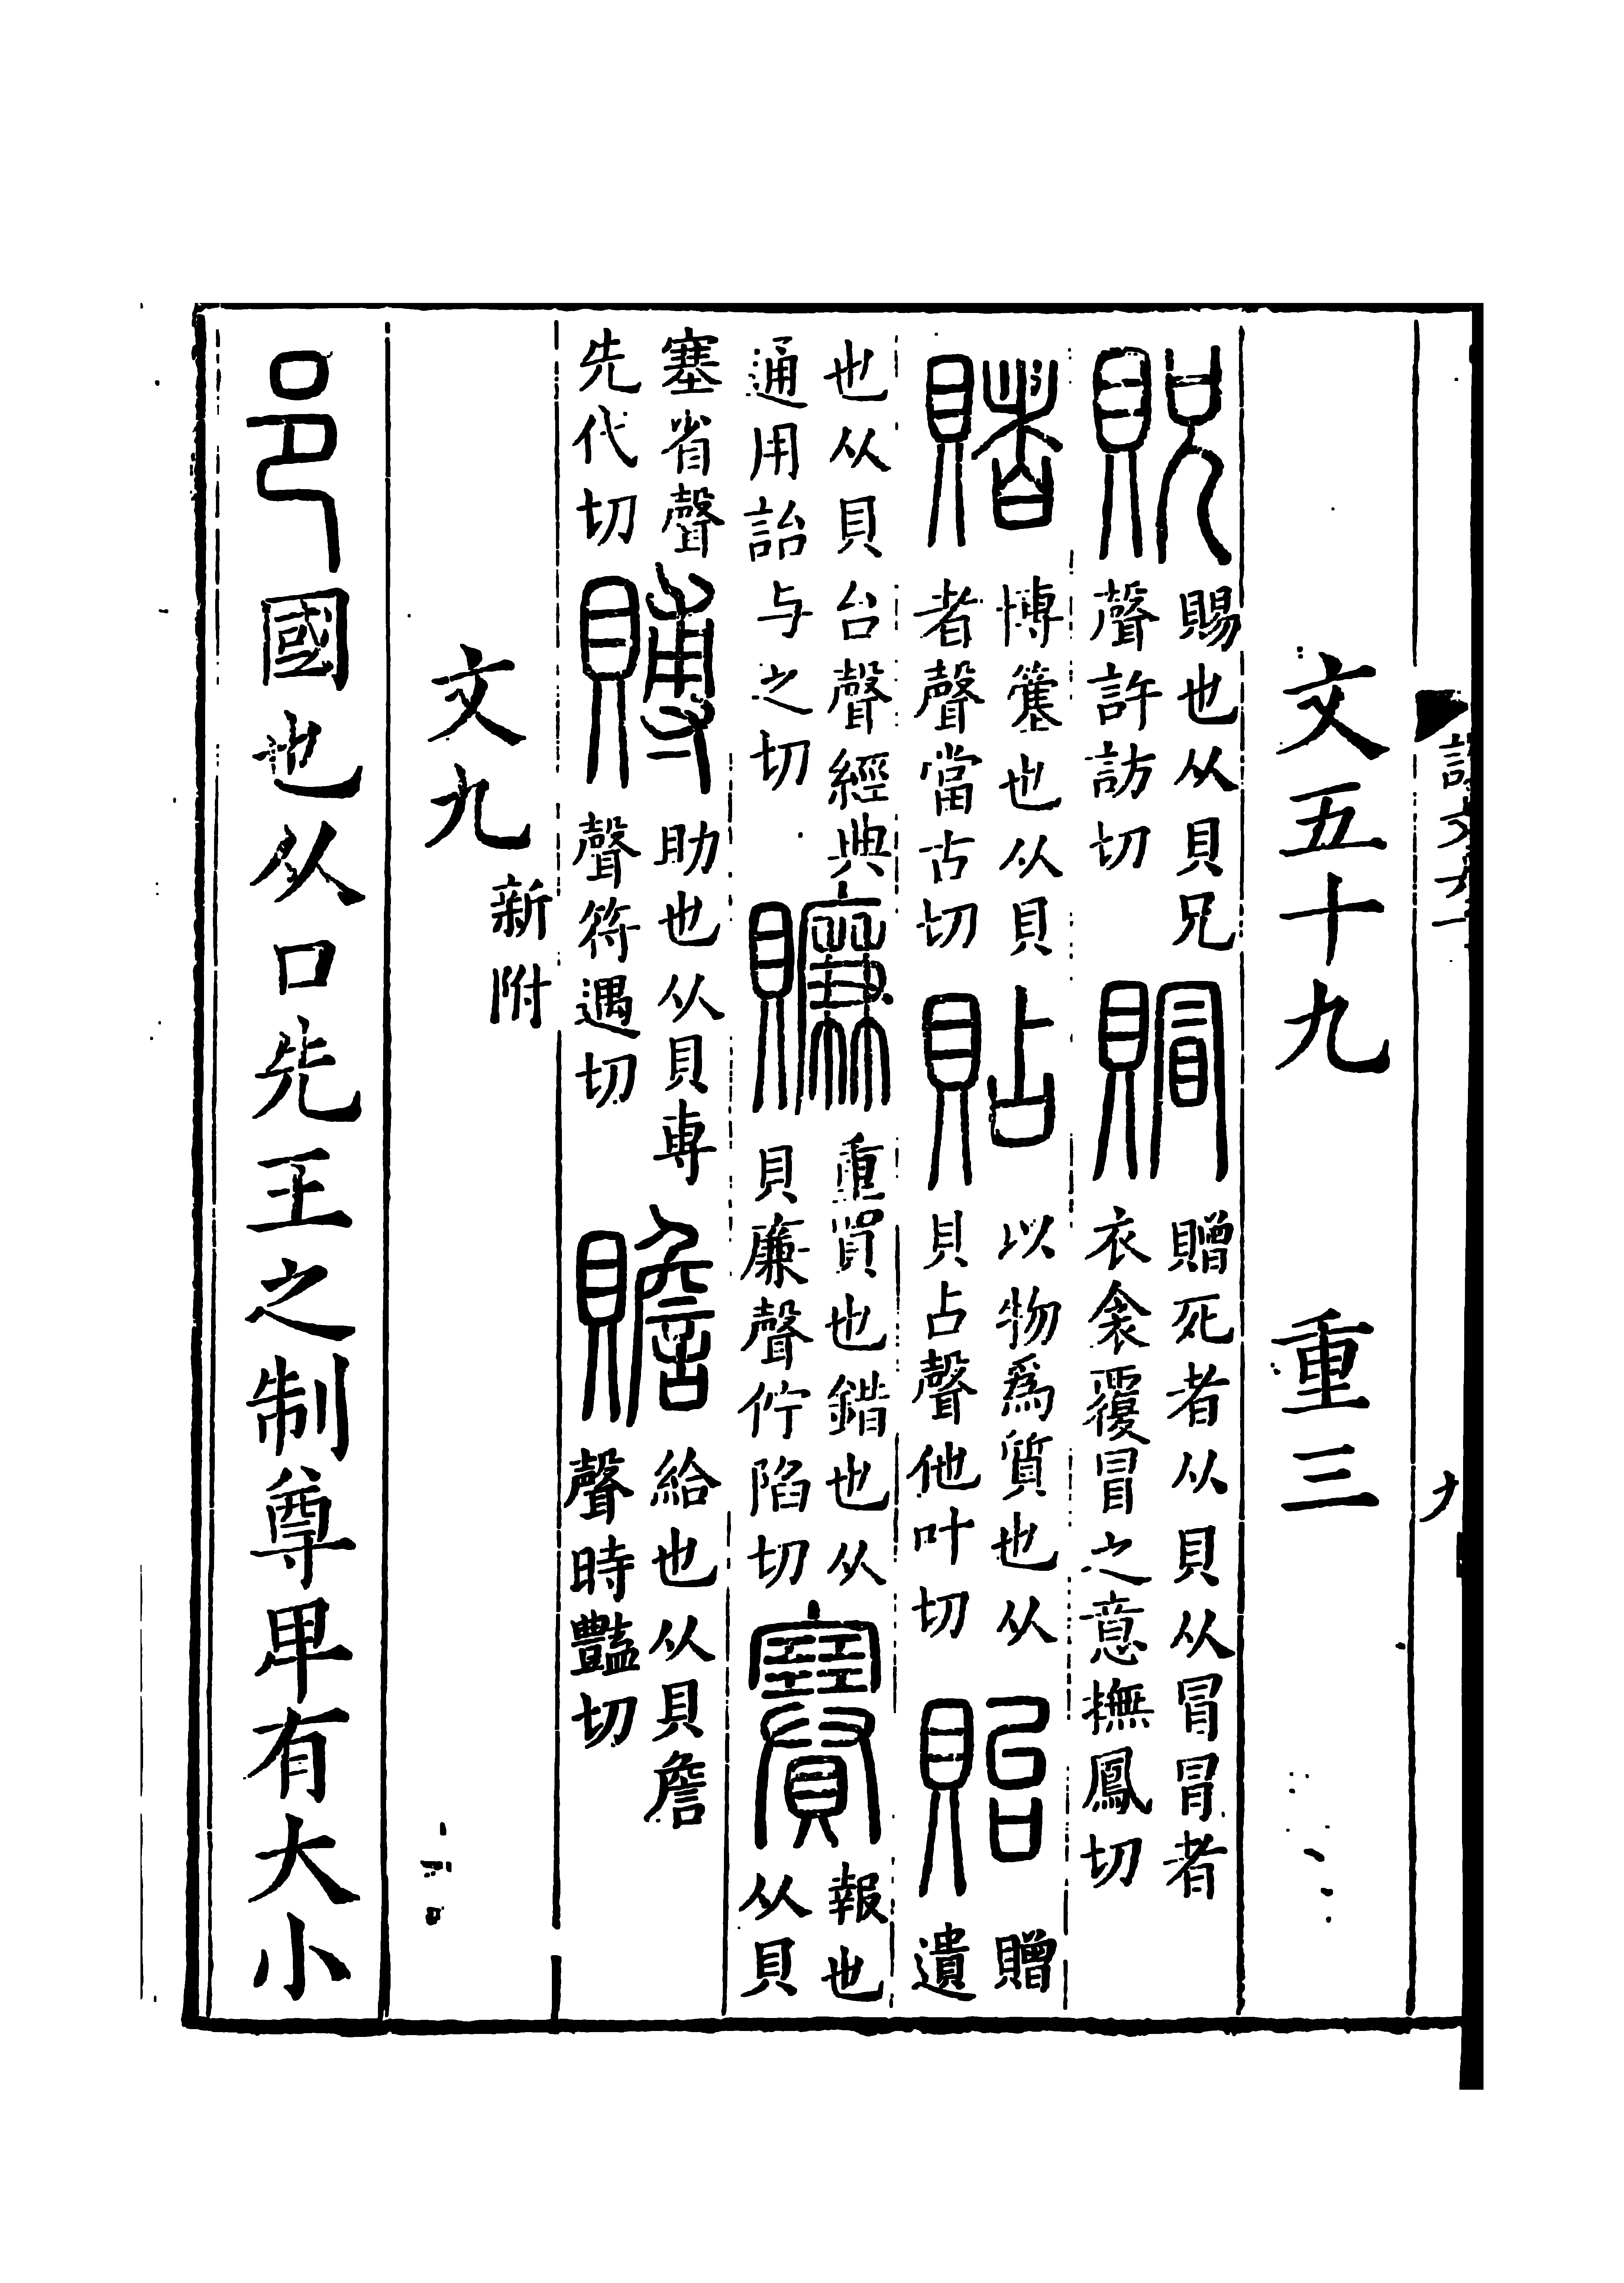 文五十九 重三
貺 賜也从貝兄聲許訪切 賵 贈死者从貝从冒冒者衣衾覆冒之意撫鳳切
賭 愽簺也从貝者聲當古切 貼 以物爲質也从貝占聲他叶切 貽 贈遺
也从貝台聲經典通用詒与之切 賺 重買也錯也从貝廉聲佇陷切 賽 報也从貝
塞省聲先代切 賻 助也从貝尃聲符遇切 贍 給也从貝詹聲時豔切
文九 新附
邑 國也从囗先王之制尊卑有大小